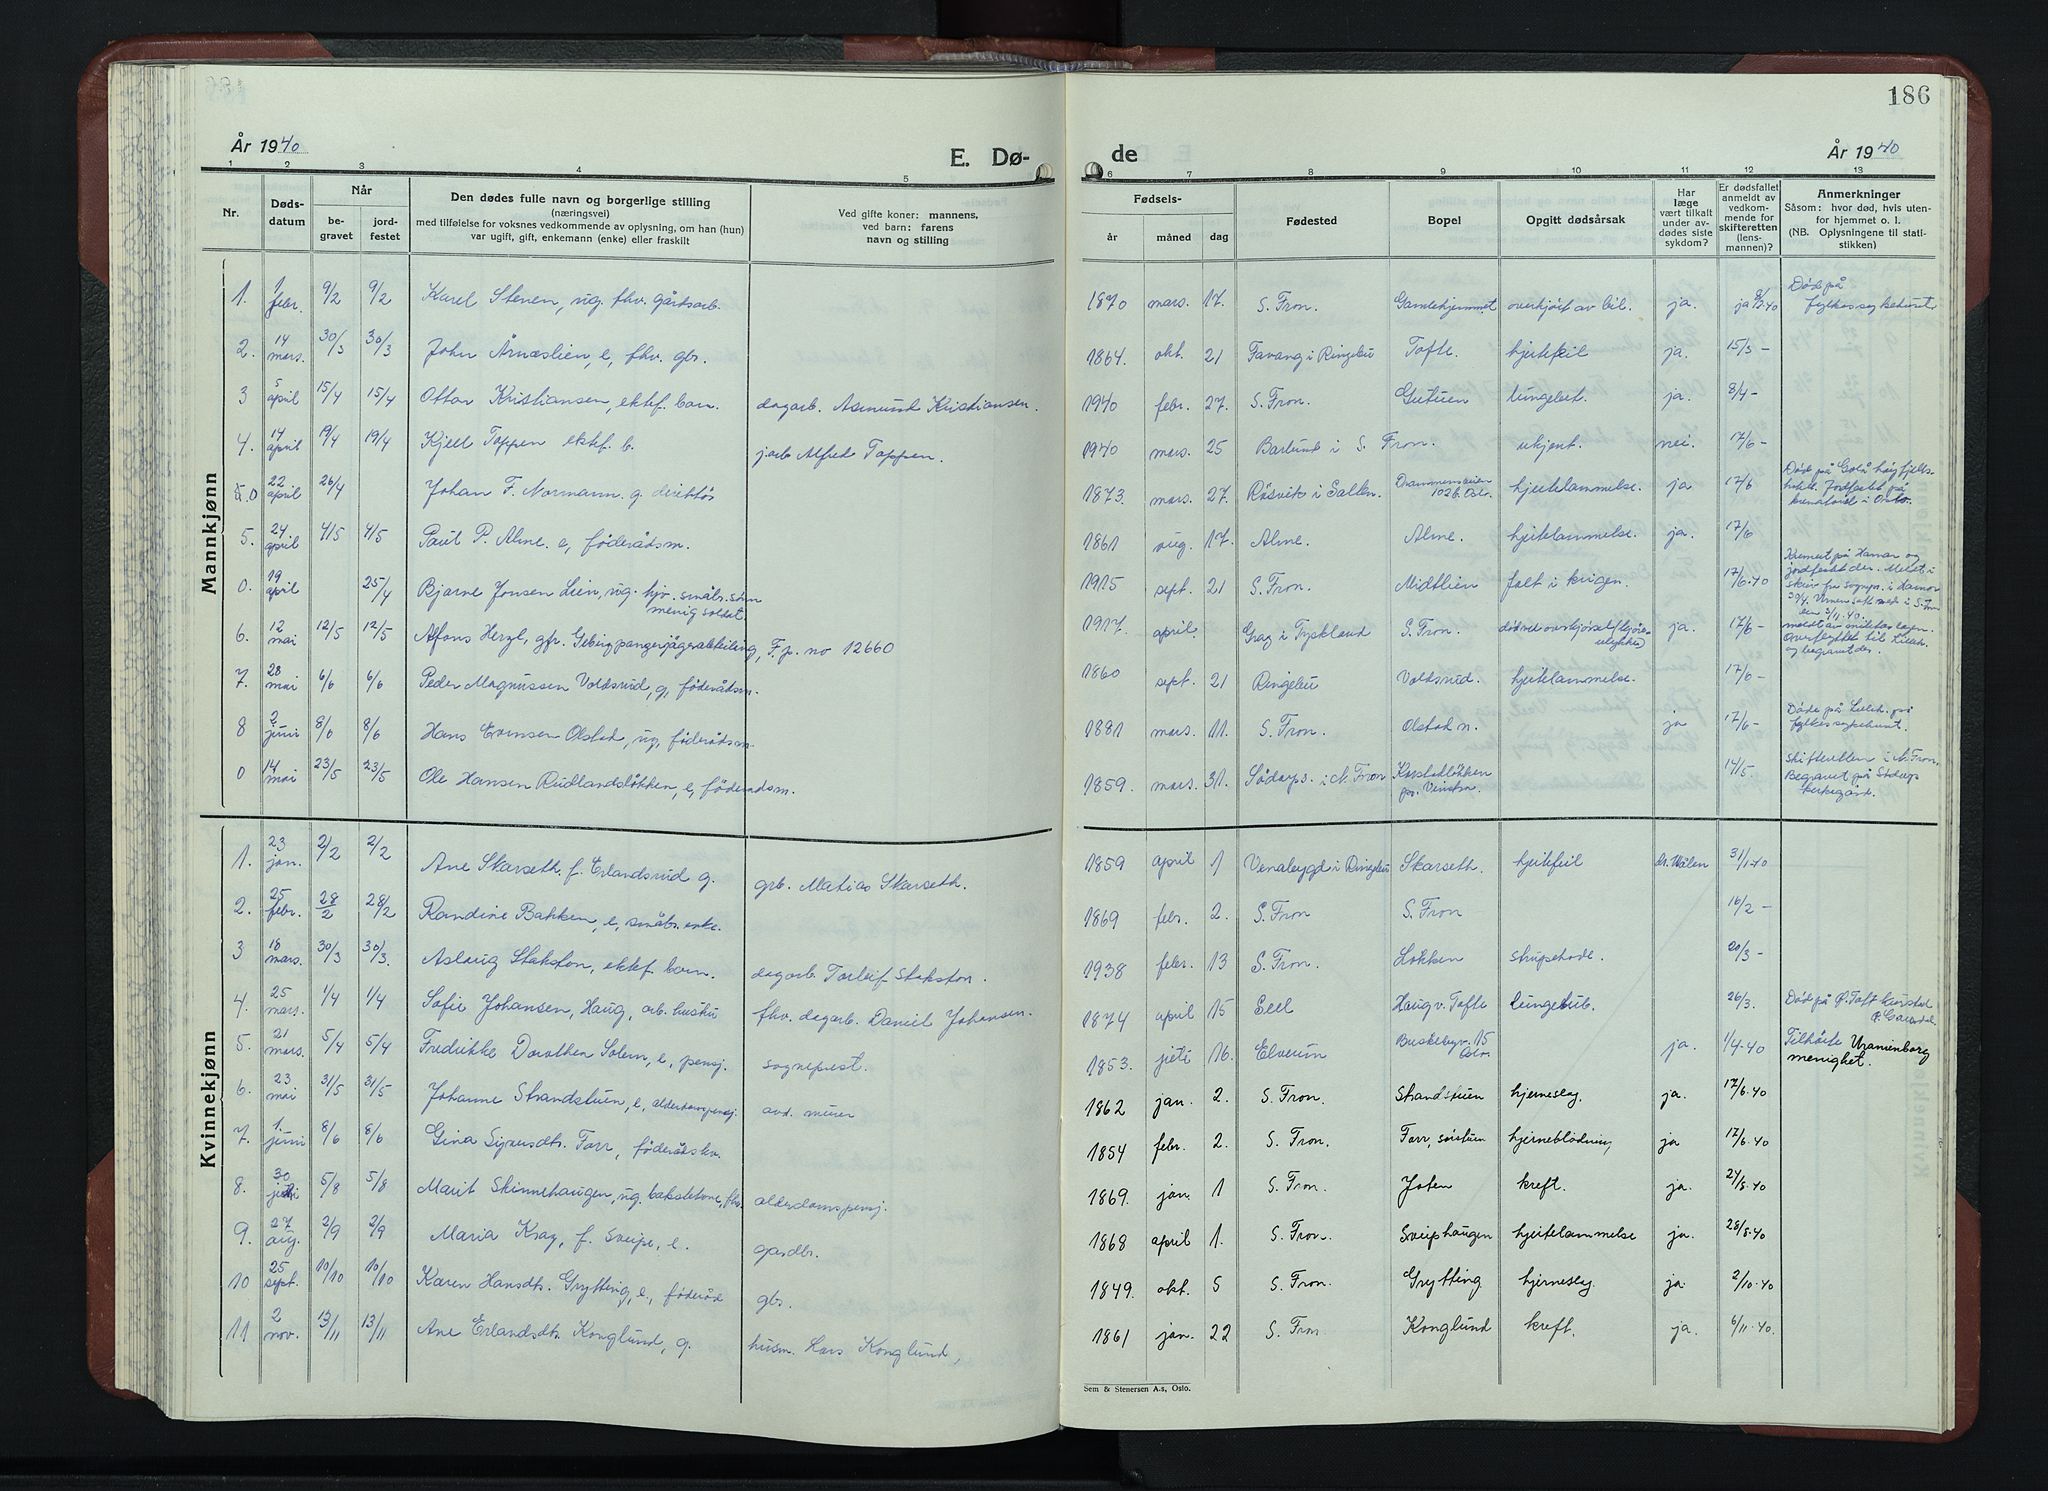 186
År 1940
E. Dø-
de
År 1940
1 2 3 4 5 6 7 8 9 10 11 12 13
Nr.
Døds-
datum
Når
be-
gravet
jord-
festet
Den dødes fulle navn og borgerlige stilling
(næringsvei)
med tilføielse for voksnes vedkommende av oplysning, om han (hun)
var ugift, gift, enkemann (enke) eller fraskilt
Ved gifte koner: mannens,
ved barn: farens
navn og stilling
Fødsels-
år måned dag
Fødested
Bopel
Opgitt dødsårsak
Har
læge
vært tilkalt
under av-
dødes siste
sykdom?
Er dødsfallet
anmeldt av
vedkom-
mende for
skifteretten
(lens-
mannen)?
Anmerkninger
Såsom: hvor død, hvis uten-
for hjemmet o. l.
(NB. Oplysningene til stati-
stikken)
Mannkjønn
1. 1 febr. 9/2 9/2 Karel Stenen, ug. fhv. gårdsarb. 1870 mars 17. S. Fron. Gamlehjemmet overkjørt av bil. ja. ja 8/2-40 Døde på fylkessykehuset
2. 14 mars. 30/3 30/3 John Årnæslien, e, fhv. gbr. 1864. okt. 21 Favang i Ringebu Tofte. hjertefeil ja. 15/3 -
3 5 april 15/4 15/4 Ottar Kristiansen, ektef. barn. dagarb. Asmund Kristiansen. 1940 febr. 27. S. Fron. lungebet. ja. 8/4 -
4. 14 april 19/4 19/4 Kjell Toppen ektef. b. jarb Alfred Toppen. 1940 mars. 25 Barlund i S. Fron. ukjent. nei. 17/6 -
0 22 april 26/4 Johan F. Normann. g. direktør 1873. mars. 27. Røsvik i Salten. Drammensveien 102 b. Oslo. hjertelammelse. ja 17/6 Døde på Golå høyfjells- hotell. Jordfestet på krematoriet i Oslo.
5. 24 april 4/5 4/5 Paul P. Alme. e, føderådsm. 1861 aug. 17. Alme. Alme. hjertelammelse. ja. 17/6
0. 19 april 25/4 Bjarne Jonsen Lien, ug. hjv. småbr. sønn menig soldat. 1915 sept. 21 S. Fron. Midtlien falt i krigen. 17/6.40 Kremert på Hamar og jordfestet der. Meldt i skriv fra sognepr. i Hamar 30/4. Urnen satt ned i S. Fron den 3/11.40.
6. 12 mai 12/5 12/5 Alfons Herzl, gfr. Gebirgpanzerjägerabteilung, F.p. no 12660 1917. april. Graz i Tyskland S. Fron. død ved overkjørsel (kjøre- ulykke) ja. 17/6 - meldt av militærlegen. Overflyttet til Lilleh. og begravet der.
7. 28 mai 6/6 6/6 Peder Magnussen Voldsrud, g, føderådsm. 1860 sept. 21 Ringebu Voldsrud. hjertelammelse. 17/6 -
8 2 juni 8/6 8/6 Hans Evensen Olstad, ug, føderådsm. 1881 mars. 11. S. Fron. Olstad n. ja 17/6 - Døde på Lilleh. fylkessykehus.
0 14 mai 23/5 23/5 Ole Hansen Rudlandsløkken, e, føderådsm. 1859. mars. 31. Sødorps. i N. Fron Karstadløkken pr. Vinstra. 14/5. Skifteretten i N. Fron. Begravet på Sødorp kirkegård.
Kvinnekjønn
1. 23 jan. 2/2 2/2 Ane Skarseth. f. Erlandsrud g. grb. Matias Skarseth. 1859 april 1 Venabygd i Ringebu Skarseth. hjertefeil Dr. Wålen 31/1-40
2. 25 febr. 28/2 28/2 Randine Bakken, e, småbr. enke. 1869 febr. 2. S. Fron S. Fron 16/2 -
3 18 mars. 30/3 30/3. Aslaug Stakston, ektef. barn. dagarb. Torleif Stakston. 1938 febr. 13 S. Fron. Løkken strupehode. 20/3 -
4. 25 mars. 1/4 1/4 Sofie Johansen, Haug, arb. hustru fhv. dagarb. Daniel Johansen. 1874 april 15 Haug v. Tofte lungebet. 26/3. Døde på
5. 21 mars. 5/4 5/4 Fredrikke Dorothea Solem, e, pensj. sogneprest. 1853. juli 16. Elverum Buskebyv. 15 Oslo. ja. 1/4-40 Tilhørte Uranienborg menighet.
6. 23 mai 31/5 31/5 Johanne Strandstuen, e, alderdomspensj. avd. murer 1862 jan. 2. S. Fron. Strandstuen hjerneslag. ja. 17/6.40
7. 1. juni 8/6 8/6 Gina Syversdtr. Forr, føderådskv. 1854 febr. 2. S. Fron. Forr, hjerneblødning, ja 17/6.40
8. 30 juli 5/8 5/8 Marit Skinnehaugen, ug. bakstekone, fhv. alderdomspensj. 1869. jan. 1 S. Fron. Joten kreft. ja. 24/8.40
9. 27 aug. 2/9 2/9 Maria Krag, f. Sveipe, e. gardbr. 1868 april 1. S. Fron. Sveiphaugen hjertelammelse ja. 28/8.40
10 25 sept. 10/10 10/10 Karen Hansdtr. Grytting, e., føderåd gbr. 1849. okt. 5 S. Fron. Grytting hjerneslag. ja 2/10.40
11 2 nov. 13/11 13/11 Ane Erlandsdtr. Konglund, g. husm. Lars Konglund, 1861 jan. 22 S. Fron. Konglund kreft. ja. 6/11.40.
Sem & Stenersen A.s, Oslo.